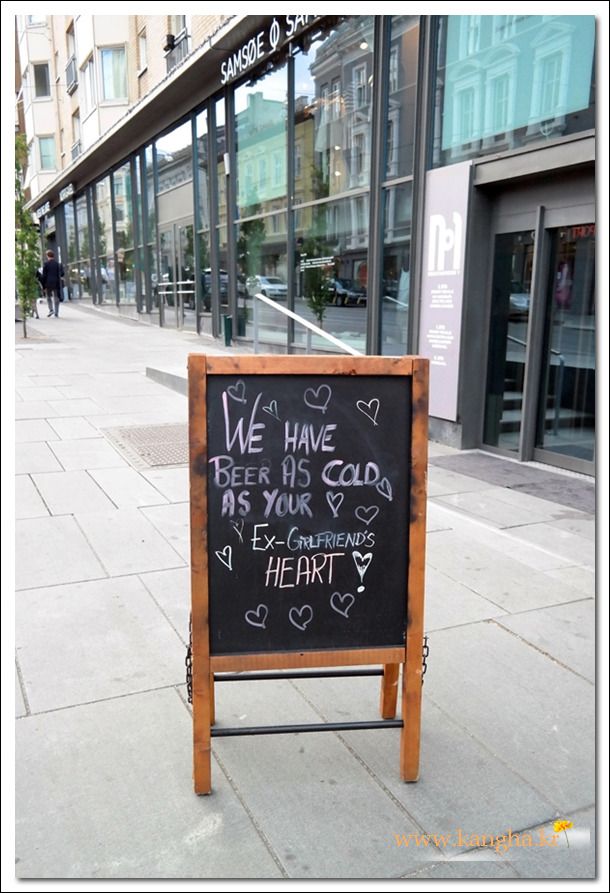 SAMSØE Φ SAMSØE
WE HAVE
BEER AS COLD
AS YOUR
EX-GIRLFRIEND'S
HEART!
www.kangha.kr